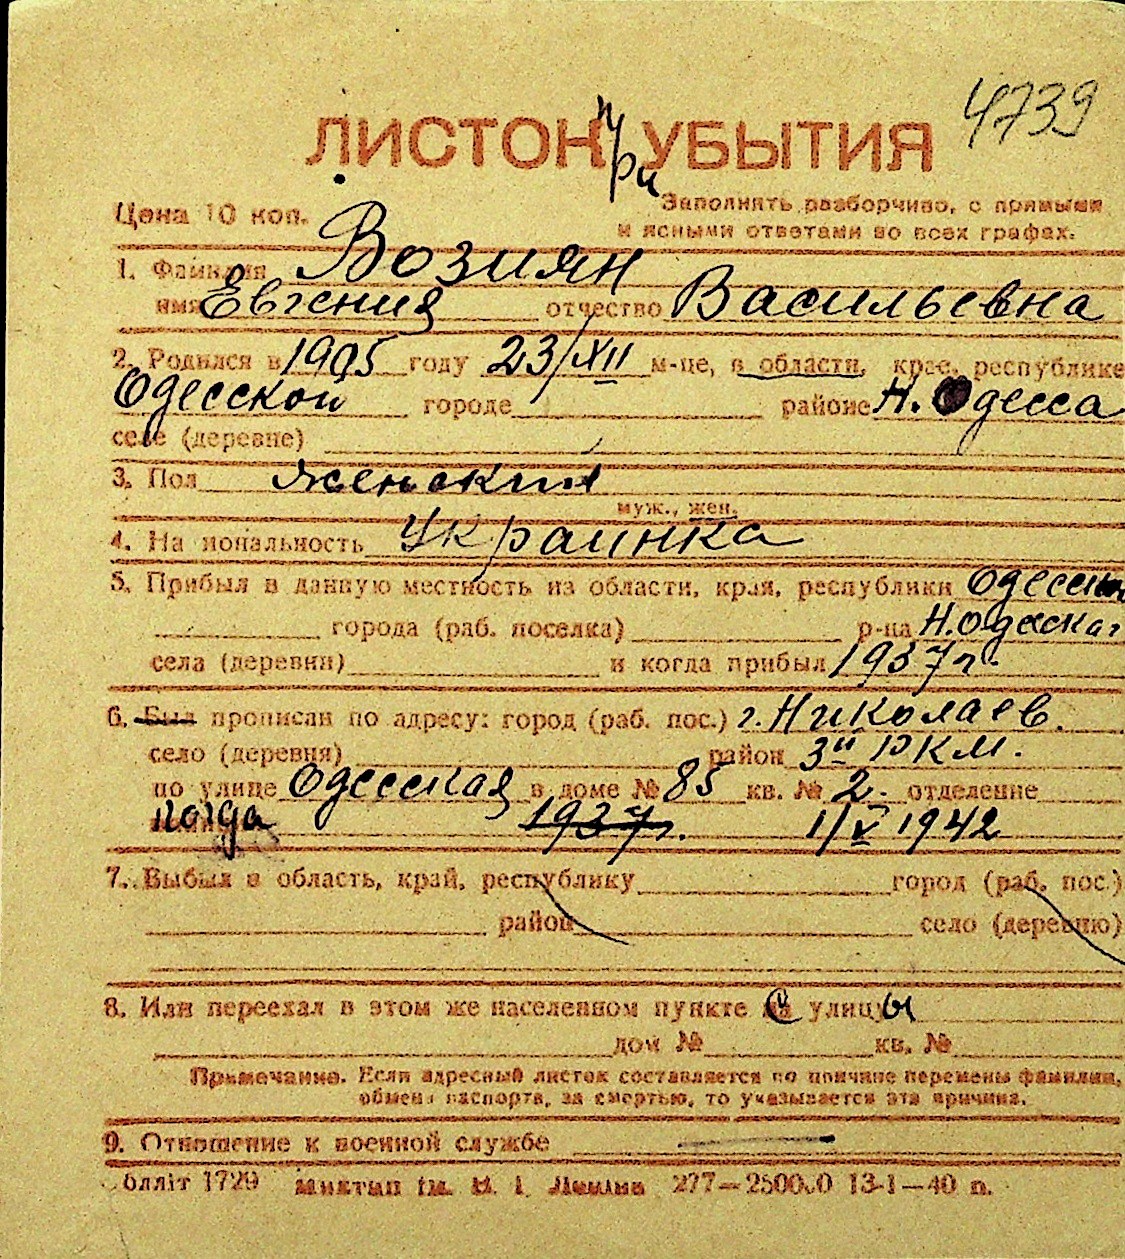 4739
ЛИСТОК при УБЫТИЯ
Цена 10 коп. Заполнять разборчиво, с прямыми
и ясными ответами во всех графах.
1. Фамилия Возиян
имя Евгения отчество Васильевна
2. Родился в 1905 году 23/XII м-це, в области, крае, республике
Одесской городе районе Н. Одесса
селе (деревне)
3. Пол женский
муж., жен.
4. Национальность Украинка
5. Прибыл в данную местность из области, края, республики Одесской
города (раб. поселка) р-на Н. Одесског
села (деревни) и когда прибыл 1937 г.
6. Был прописан по адресу: город (раб. пос.) г. Николаев.
село (деревня) район 3й РКМ.
по улице Одесская в доме № 85 кв. № 2. отделение
когда 1937 г. 1/V 1942
7. Выбыл в область, край, республику город (раб. пос.)
район село (деревню)
8. Или переехал в этом же населенном пункте с улицы
дом № кв. №
Примечание. Если адресный листок составляется по причине перемены фамилии,
обмена паспорта, за смертью, то указывается эта причина.
9. Отношение к военной службе
блліт 1729 ім. В. І. Леніна 277—25000 13-1—40 п.